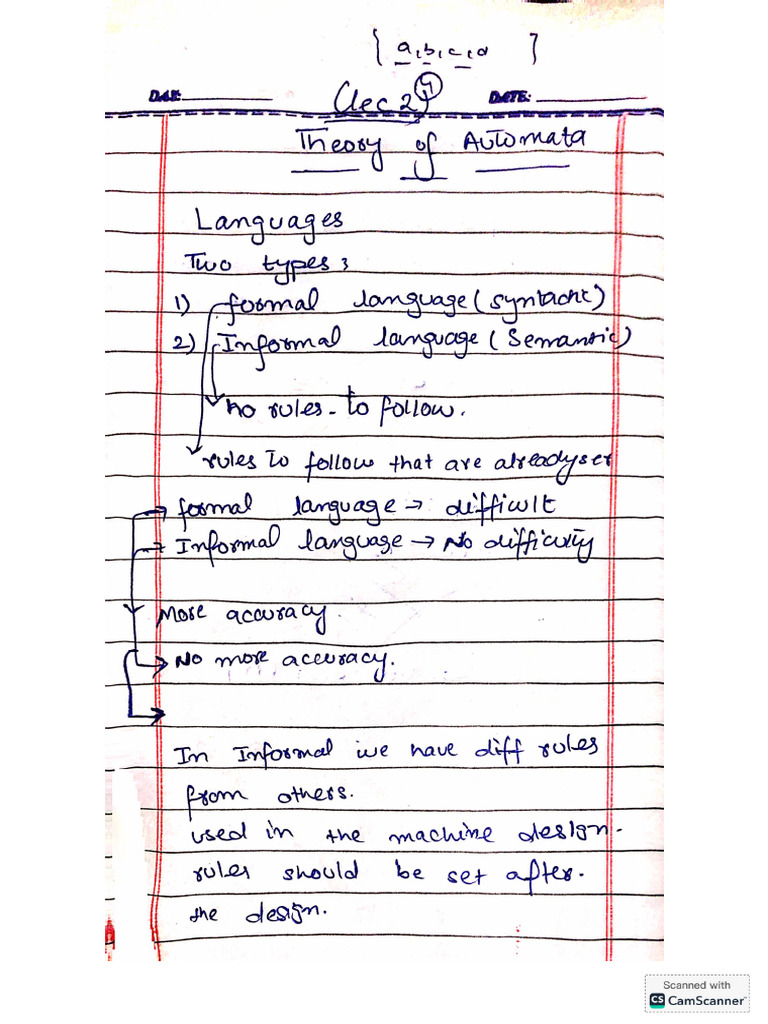 { a, b, c, d }
DATE:
(lec 2) 4
DATE:
Theory of Automata
Languages
Two types:
1) formal language (syntactic)
2) Informal language (Semantic)
no rules - to follow.
rules to follow that are already set
formal language → difficult
Informal language → No difficulty
More accuracy.
No more accuracy.
In Informal we have diff rules
from others.
used in the machine design.
rules should be set after.
the design.
Scanned with
CS CamScanner